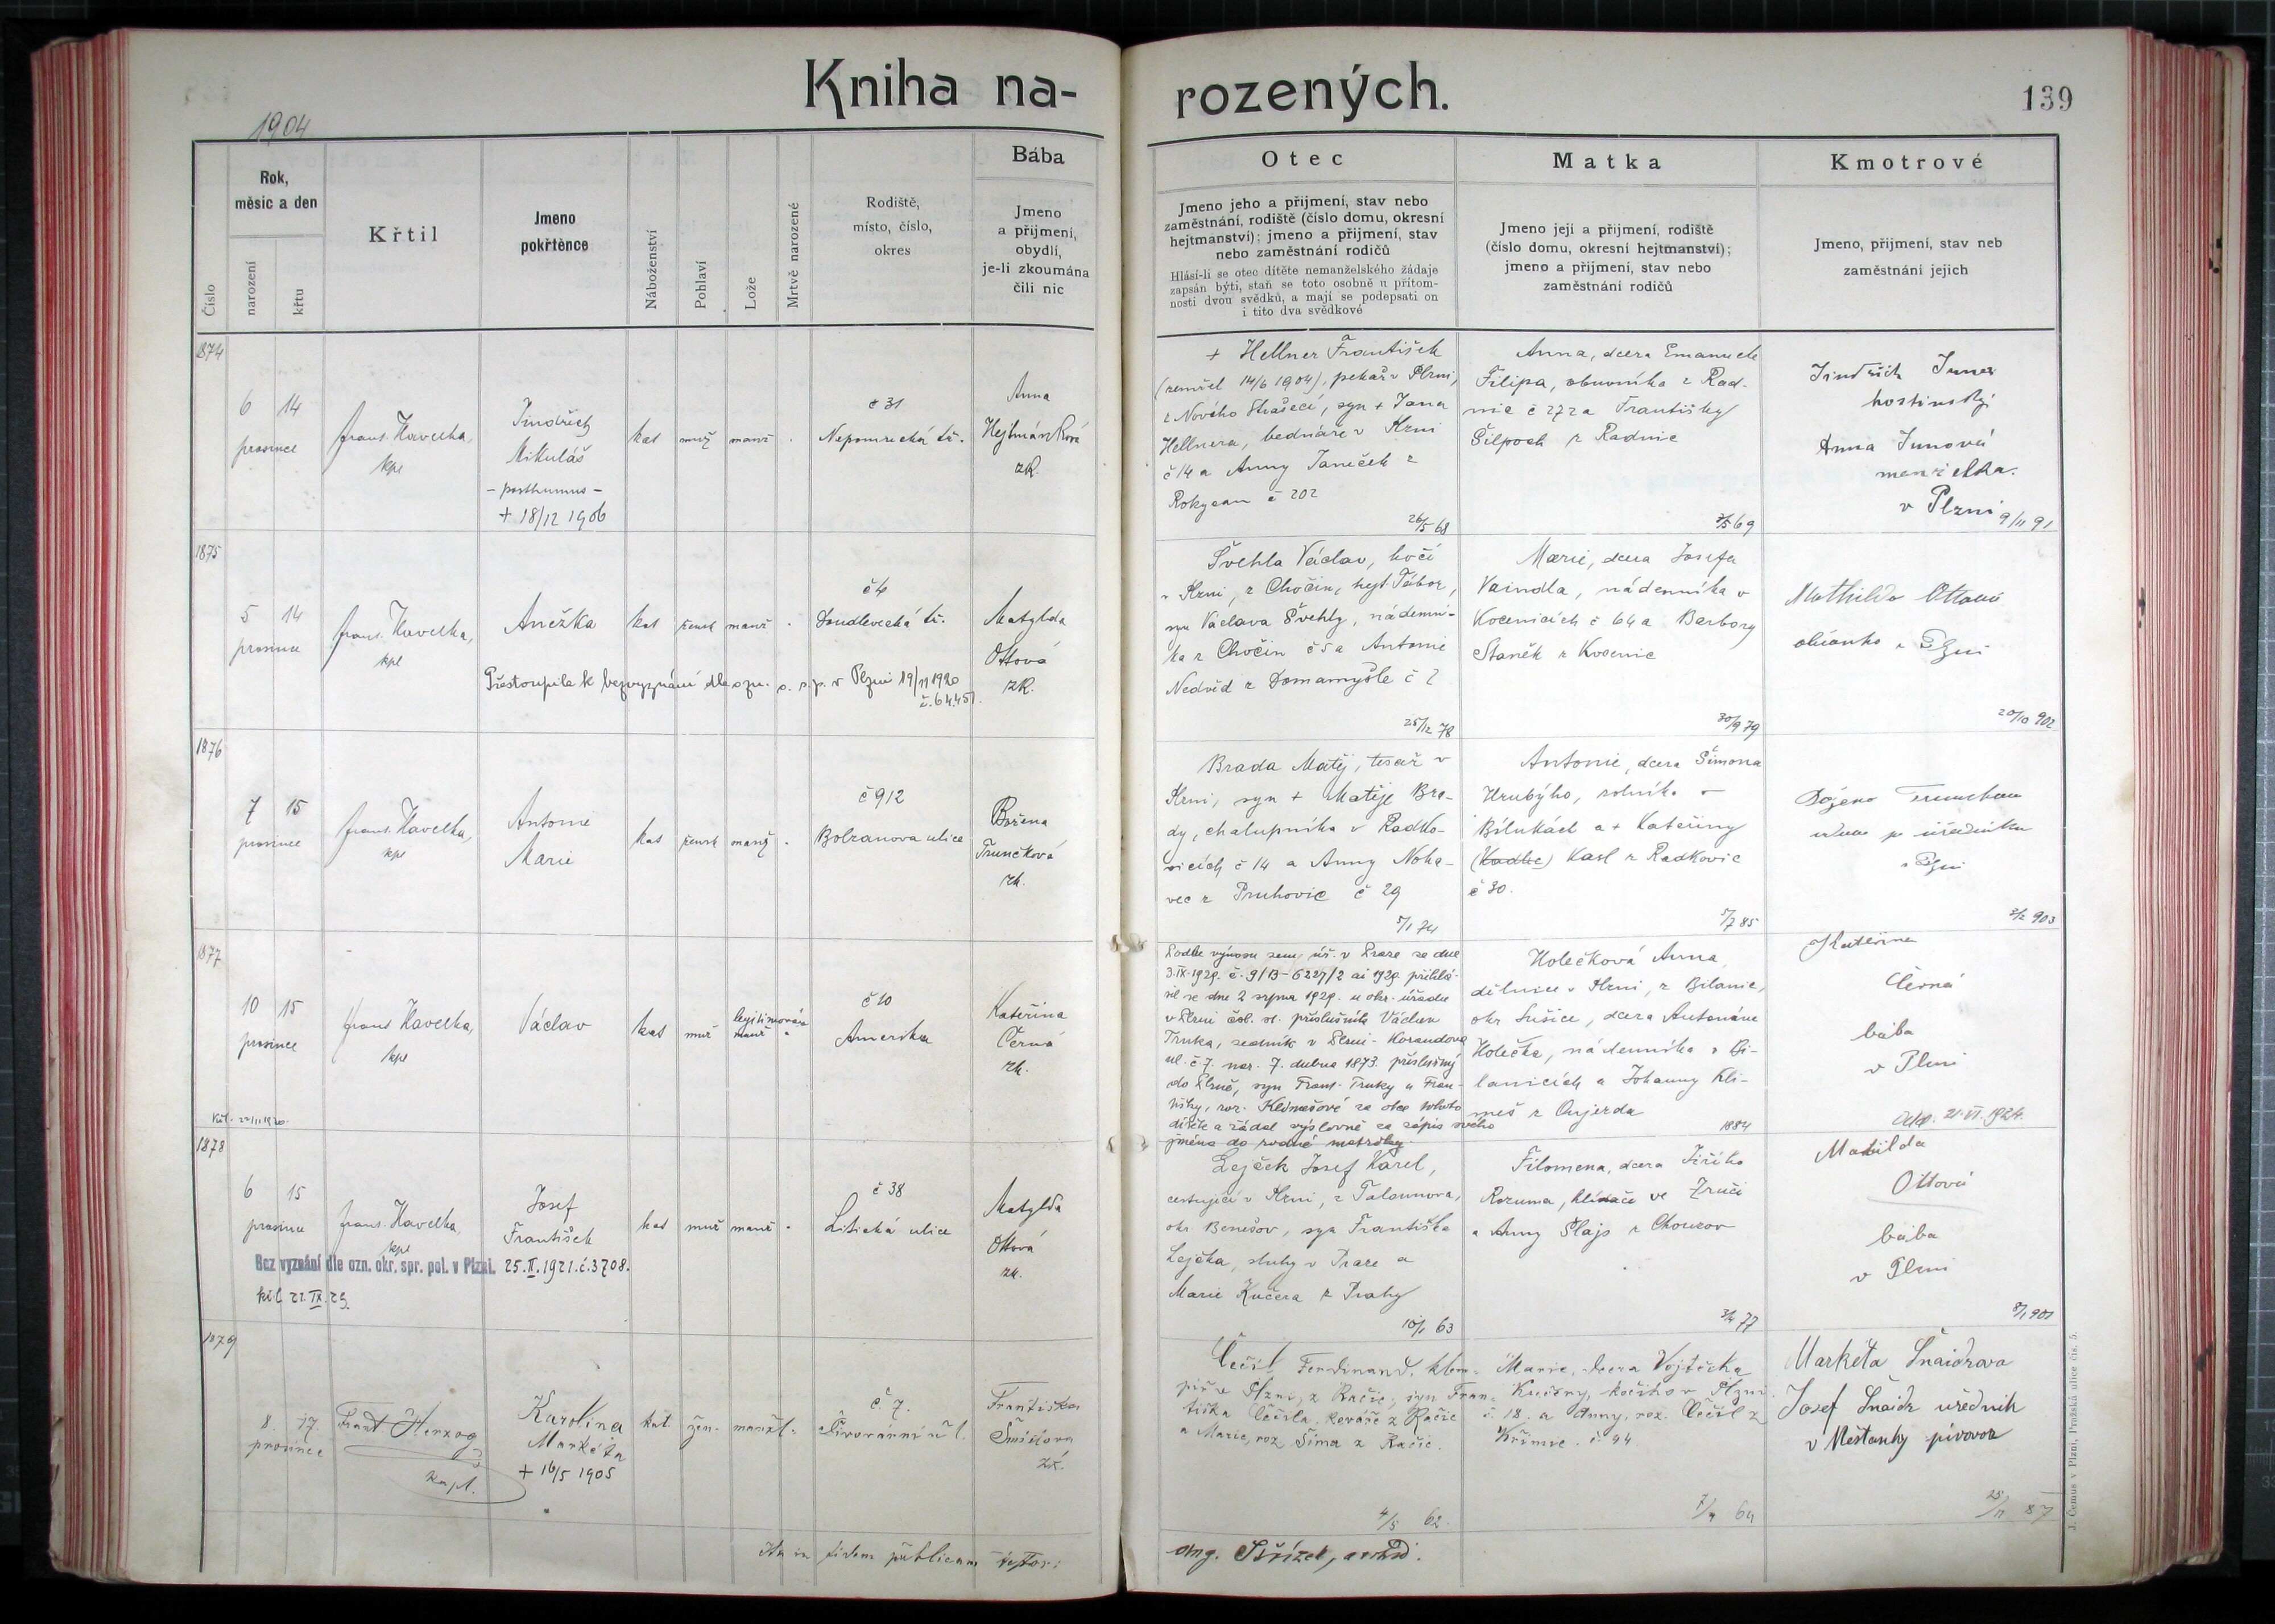 Kniha na-
rozených.
139
1904
Číslo
Rok,
měsíc a den
narození
křtu
Křtil
Jmeno
pokřtěnce
Náboženství
Pohlaví
Lože
Mrtvě narozené
Rodiště,
místo, číslo,
okres
Bába
Jmeno
a příjmení,
obydlí,
je-li zkoumána
čili nic
Otec
Jmeno jeho a příjmení, stav nebo
zaměstnání, rodiště (číslo domu, okresní
hejtmanství); jmeno a příjmení, stav
nebo zaměstnání rodičů
Hlásí-li se otec dítěte nemanželského žádaje
zapsán býti, staň se toto osobně u přítom-
nosti dvou svědků, a mají se podepsati on
i tito dva svědkové
Matka
Jmeno její a příjmení, rodiště
(číslo domu, okresní hejtmanství);
jmeno a příjmení, stav nebo
zaměstnání rodičů
Kmotrové
Jmeno, příjmení, stav neb
zaměstnání jejich
1874
6 14
prosince
Frant. Havelka,
kpl
Jindřich
Mikuláš
- posthumus -
+ 18/12 1906
kat
muž
manž
č 31
Nepomucká tř.
Anna
Hejtmánková
zk.
+ Hellner František
(zemřel 14/6 1904), pekař v Plzni,
z Nového Strašecí, syn + Jana
Hellnera, bednáře v Plzni
č 14 a Anny Janeček z
Rokycan č 202
26/5 68
Anna, dcera Emanuele
Filipa, obuvníka z Rad-
nic č 272 a Františky
Šilpoch z Radnic
69
Jindřich Juner
hostinský
Anna Junová
manželka.
v Plzni
9/11 91
1875
5 14
prosince
Frant. Havelka,
kpl
Anežka
kat
žensk
manž
č 4
Doudlevecká tř.
Matylda
Ottová
zk.
Přestoupila k bezvyznání dle ozn. o. s. p. v Plzni 19/11 1920
č. 64.451.
Švehla Václav, kočí
v Plzni, z Chočin, hejt. Tábor,
syn Václava Švehly, nádenní-
ka z Chočin č 5 a Antonie
Nedvěd z Domamyšle č 2
25/12 78
Marie, dcera Josefa
Vaindla, nádenníka v
Kocenicích č 64 a Barbory
Staněk z Kocenic
30/9 79
Mathilda Ottová
občanka v Plzni
20/10 902
1876
7 15
prosince
Frant. Havelka,
kpl
Antonie
Marie
kat
žensk
manž
č 912
Bolzanova ulice
Božena
Trunečková
zk.
Brada Matěj, tesař v
Plzni, syn + Matěje Bra-
dy, chalupníka v Radko-
vicích č 14 a Anny Noha-
vec z Pruhovic č 29
5/1 74
Antonie, dcera Šimona
Hrubýho, rolníka v
Bílukách a + Kateřiny
(Kadlec) Kasl z Radkovic
č 30.
5/7 85
Božena
vdova po úředníku
v Plzni
2/2 903
1877
10 15
prosince
Frant Havelka,
kpl
Václav
kat
muž
legitimován
manž
č 10
Amerika
Kateřina
Černá
zk.
Podle výnosu zem. úř. v Praze ze dne
3.IX.1929. č. 9/B-6227/2 ai 1929 přihlá-
sil se dne 2 srpna 1929. u okr. úřadu
v Plzni čsl. st. příslušník Václav
Truka, zedník v Plzni - Korandova
ul. č 7. nar. 7. dubna 1873. příslušný
do Plzně, syn Frant. Truky a Fran-
tišky, roz. Klimešové za otce tohoto
dítěte a žádal výslovně za zápis svého
jména do rodné matriky.
Holečková Anna,
dělnice v Plzni, z Bílanic,
okr Sušice, dcera Antonína
Holečka, nádenníka v Bí-
lanicích a Johanny Kli-
meš z Cujezda
1884
Kateřina
Černá
bába
v Plzni
21.VI.1924.
1878
6 15
prosince
Frant. Havelka,
kpl
Josef
František
kat
muž
manž
č 38
Litická ulice
Matylda
Ottová
zk.
Bez vyznání dle ozn. okr. spr. pol. v Plzni. 25.II.1921.č.3708.
Lejček Josef Karel,
cestující v Plzni, z Talounova,
okr. Benešov, syn Františka
Lejčka, sluhy v Praze a
Marie Kučera z Prahy
10/1 63
Filomena, dcera Jiřího
Rozuma, hlídače ve Zruči
a Anny Šlajs z Chouzov
77
Mathilda
Ottová
bába
v Plzni
8/1 901
1879
8. 17.
prosince
Frant Herzog
kapl.
Karolina
Markéta
+ 16/5 1905
kat.
žen.
manžl.
č. 7.
Pivovarní ul.
Františka
zk.
Čečil Ferdinand, klem-
píř v Plzni, z Račic, syn Fran-
tiška Čečila, kováře z Račic
a Marie, roz. Šíma z Račic.
4/5 62.
Marie, dcera Vojtěcha
Kučery, kočího v Plzni
č. 18. a Anny, roz. Čečil z
Křimic. č. 44
64
Markéta Šnaidrova
Josef Šnaidr úředník
v Měšťanský pivovar
25/11 87
Ita in fidem publicam testor:
Aug. Střízek, archid.
J. Čemus v Plzni, Pražská ulice čís. 5.